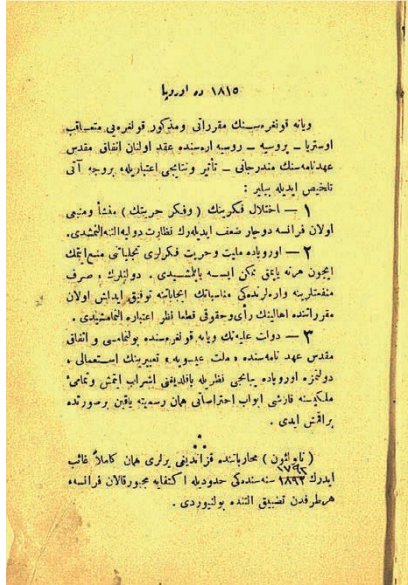 ١٨١٥ ده اوروپا
ويانه قونغره‌سنك مقرراتى ومذكور قونغره‌يى متعاقب
اوستريا ــ پروسيه ــ روسيه اره‌سنده عقد اولنان اتفاق مقدس
عهدنامه‌سنك مندرجاتى ــ تأثير ونتايجى اعتباريله‌، بروجه آتى
تلخيص ايديله بيلير :
١ — اختلال فكرينك ( وفكر حريتك ) منشأ ومنبعى
اولان فرانسه دوچار ضعف ايديله‌رك نظارت دوليه آلتنه آلنمشدى.
٢ — اوروپاده مليت وحريت فكرلرى تجلياتنى منع ايتمك
ايچون هرنه يايمق ممكن ايسه يايلمشدى . دولتلرك ، صرف
منفعتلرينه وارالرنده‌كى مناسباتك ايجاباتنه توفيق ايدلمش اولان
مقرراتنده اهالينك رأى وحقوقى قطعا نظر اعتباره آلنمامشدى .
٣ — دولت عليه‌نك ويانه قونغره‌سنده بولنمامسى و اتفاق
مقدس عهد نامه‌سنده « ملت عيسويه » تعبيرينك استعمالى ،
دولتمزه اوروپاده يبانجى نظريله باقلديغنى اشراب ايتمش وتمامئ
ملكيه‌سنه قارشى ابواب احتراساتى همان رسميته ياقين برصورتده
براقمش ايدى .
( ناپولئون ) محارباتنده قزانديغى يرلرى همان كاملاً غائب
١٧٩٢
ايدرك ١٨٩٢ سنه‌سنده‌كى حدوديله اكتفايه مجبور قالان فرانسه‌،
هرطرفدن تضييق آلتنده بولنيوردى .